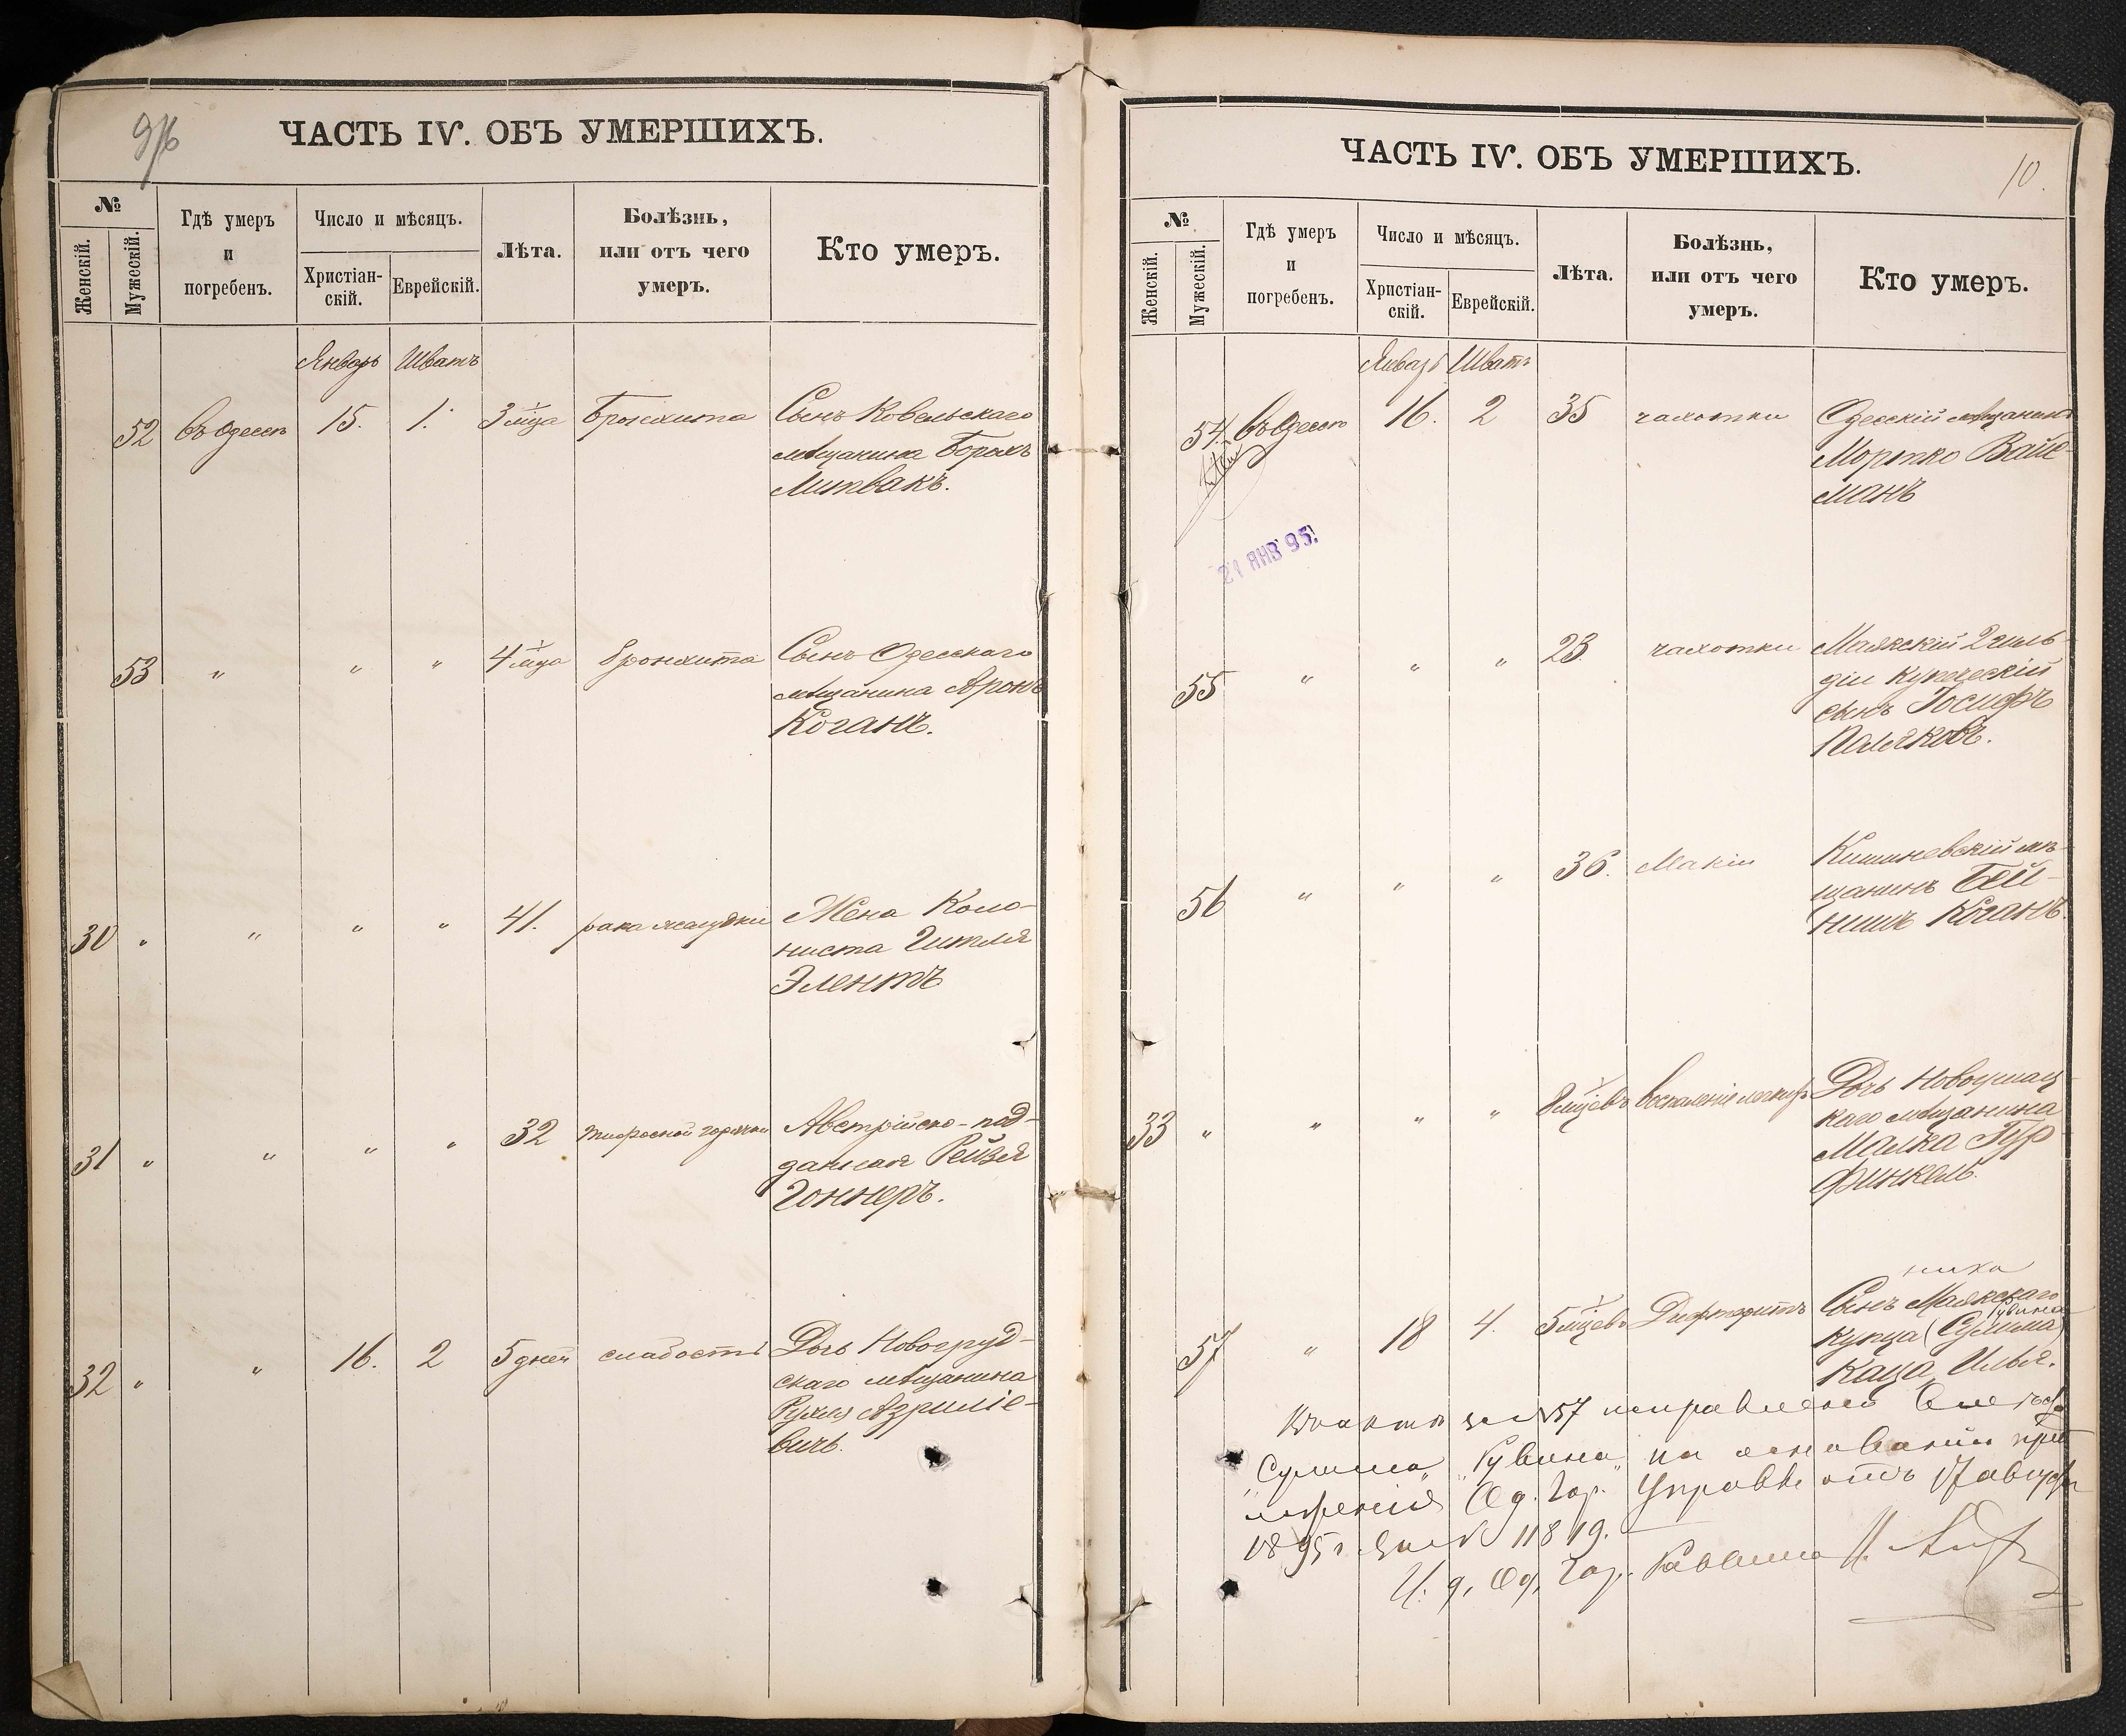 9/б
ЧАСТЬ IV. ОБЪ УМЕРШИХЪ.
№
Женскій.
Мужескій.
Гдѣ умеръ
и
погребенъ.
Число и мѣсяцъ.
Христіан-
скій.
Еврейскій.
Лѣта.
Болѣзнь,
или отъ чего
умеръ.
Кто умеръ.
Январь Шватъ
52 въ Одессѣ 15. 1. 3 мца Бронхита Сынъ Ковельскаго
мѣщанина Борахъ
Литвакъ.
53 " " " 4 мца бронхита Сынъ Одесскаго
мѣщанина Аронъ
Коганъ.
30 " " " " 41. рака желудка Жена Коло-
ниста Гитля
Элентъ
31 " " " " 32 тифозной горячки Австрійско-под-
данная Рейзя
Гоннеръ.
32 " " 16. 2 5 дней слабости Дочь Новогруд-
скаго мѣщанина
Рухля Азриліе-
вичъ.
10.
ЧАСТЬ IV. ОБЪ УМЕРШИХЪ.
№
Женскій.
Мужескій.
Гдѣ умеръ
и
погребенъ.
Число и мѣсяцъ.
Христіан-
скій.
Еврейскій.
Лѣта.
Болѣзнь,
или отъ чего
умеръ.
Кто умеръ.
Январь Шватъ
54 въ Одессѣ 16. 2 35 чахотки Одесскій мѣщанинъ
Мортко Вайс-
манъ
21 ЯНВ 95
55 " " " 23. чахотки Маякскій 2 гиль-
діи купеческій
сынъ Іосифъ
Поляковъ.
56 " " " 36. Кишиневскій мѣ-
щанинъ Бей-
нишъ Коганъ.
33 " " " " 8 мцевъ воспаленіе легкихъ Дочь Новоушиц-
каго мѣщанина
Малка Гур-
финкель.
57 " 18 4. 5 мцевъ Дифтеритъ Сынъ Маякскаго
Рувина
купца (Сулима)
Каца, Илья.
за №57 исправлено
"Сулима" "Рувина" на основаніи пред-
ложенія Од. Гор. Управы отъ 17 августа
1895 г. за № 11819.
И. д. Од. Гор. Раввина